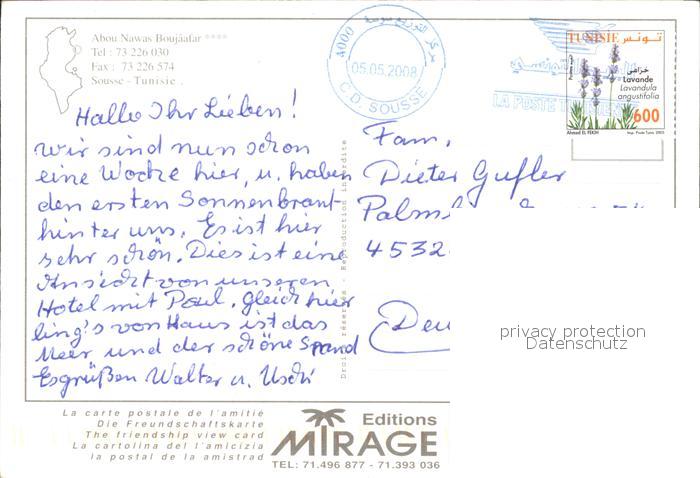 Abou Nawas Boujâafar ****
Tel : 73 226 030
Fax : 73 226 574
Sousse - Tunisie .
4000 مركز التوزيع سوسة
05.05.2008
C.D. SOUSSE
LA POSTE
TUNISIE تونس
خزامى
Lavande
Lavandula
angustifolia
600
Hallo Ihr Lieben!
Wir sind nun schon
eine Woche hier, u. haben
den ersten Sonnenbrant
hinter uns. Es ist hier
sehr schön. Dies ist eine
Ansicht von unseren
Hotel mit Pool. Gleich hier
ling's von Haus ist das
Meer und der schöne Strand
Es grüßen Walter u. Uschi
Droits réservés - Reproduction interdite
Fam.
Dieter Gufler
Palm
4532
Deu
privacy protection
Datenschutz
La carte postale de l'amitié
Die Freundschaftskarte
The friendship view card
La cartolina del l'amicizia
la postal de la amistrad
Editions
MIRAGE
TEL: 71.496 877 - 71.393 036